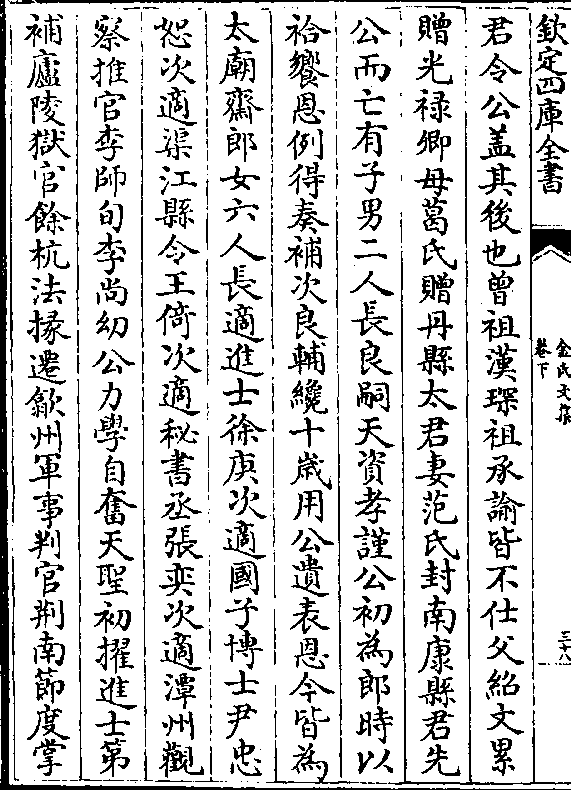 欽定四庫全書
金氏文集
卷下
三十八
君令公盖其後也曾祖漢琛祖承諭皆不仕父紹文累
贈光禄卿母葛氏贈丹縣太君妻范氏封南康縣君先
公而亡有子男二人長良嗣天資孝謹公初為郎時以
祫饗恩例得奏補次良輔纔十歲用公遺表恩今皆為
太廟齋郎女六人長適進士徐庚次適國子博士尹忠
恕次適渠江縣令王倚次適秘書丞張奕次適潭州觀
察推官李師旬李尚幼公力學自奮天聖初擢進士第
補廬陵獄官餘杭法掾遷歙州軍事判官荆南節度掌